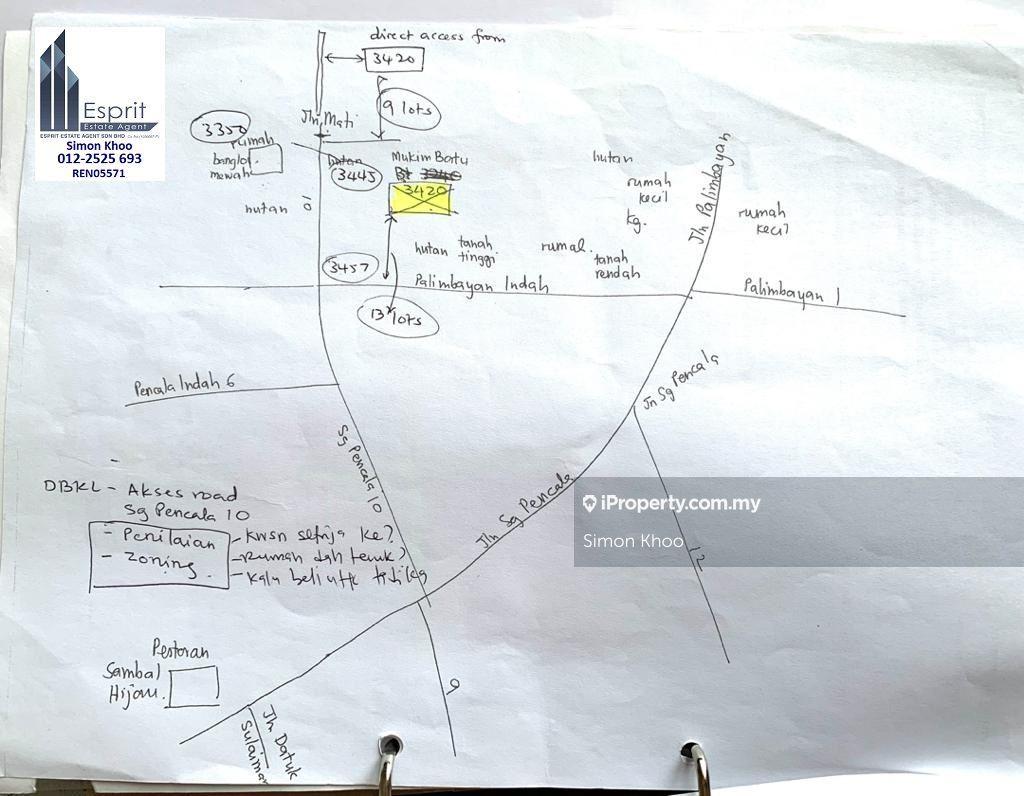 direct access from
3420
9 lots
Jln Mati
Esprit
Estate Agent
ESPRIT ESTATE AGENT SDN BHD
Simon Khoo
012-2525 693
REN05571
3350
rumah
banglo
mewah
hutan
3445
Mukim Batu
3420
hutan
10
hutan
rumah
kecil
kg.
Jln Palimbayan
rumah
kecil
hutan
tanah
tinggi
rumah
tanah
rendah
3457
Palimbayan Indah
Palimbayan 1
13 lots
Pencala Indah 6
Jln Sg Pencala
Sg Pencala 10
DBKL - Akses road
Sg Pencala 10
- Penilaian
- Zoning
- Kwsn setnja ke?
- Rumah dah teruk?
- Kalu beli
Jln Sg Pencala
iProperty.com.my
Simon Khoo
12
Restoran
Sambal
Hijau
9
Jln Datuk
Sulaiman